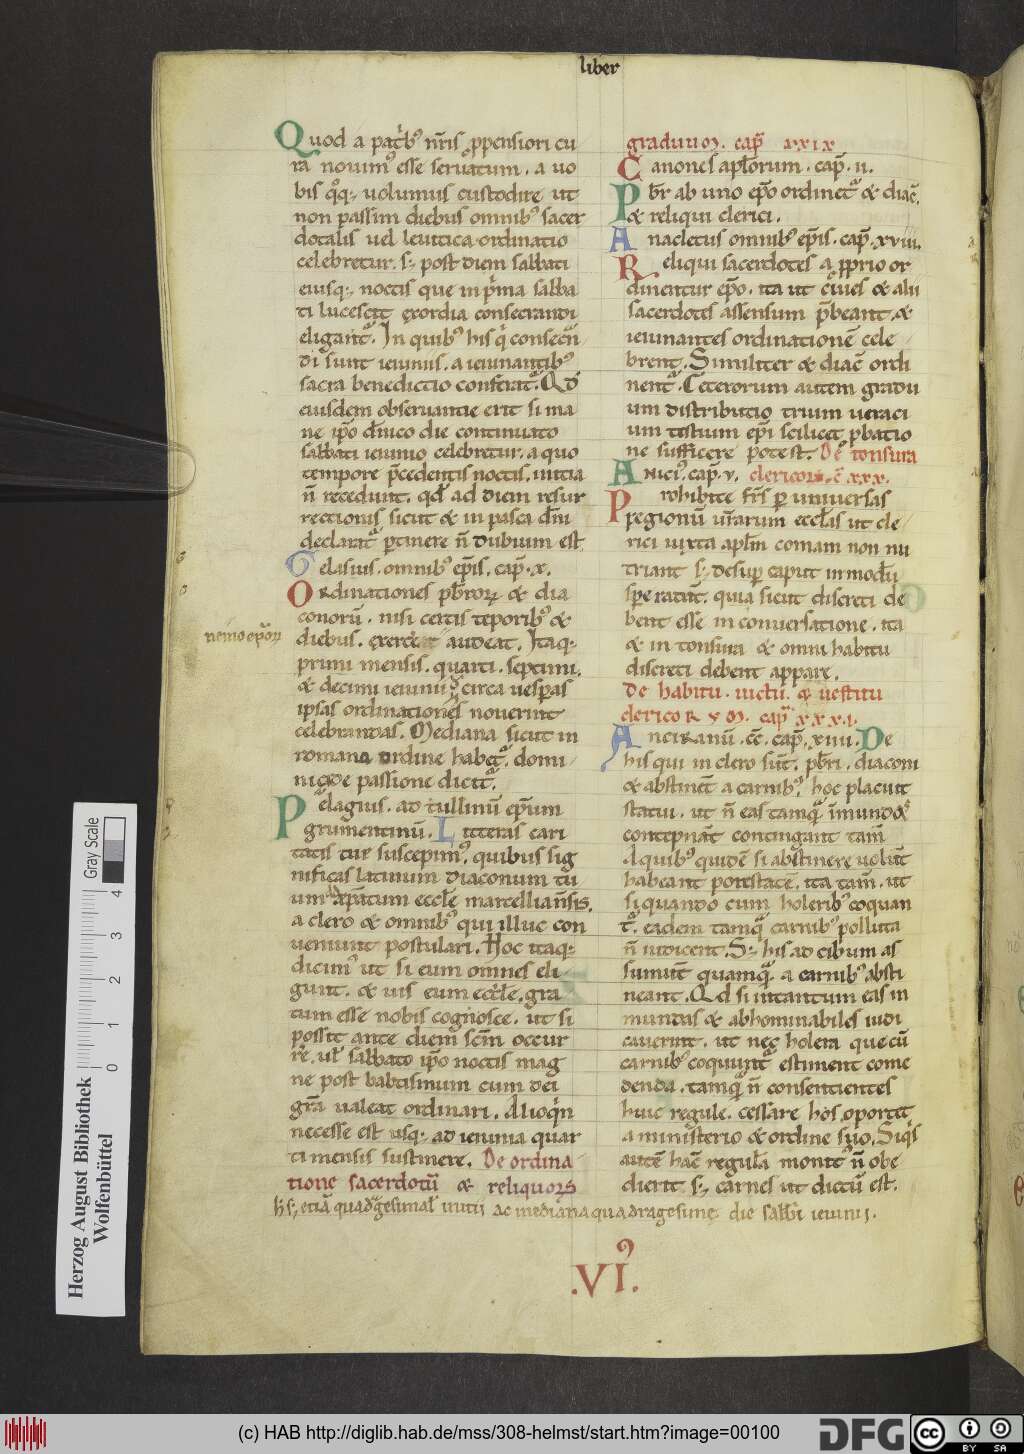 liber
Quod a patrib᷒ nr̄is ꝓpensiori cu
ra nouim᷒ esse seruatum. a uo
bis qͦq; uolumus custodire ut
non passim diebus omnib᷒ sacer
dotalis uel leuitica ordinatio
celebretur. s; post diem sabbati
eiusq; noctis que in pͥma sabba
ti lucescit exordia consecrandi
eligant᷑. In quib᷒ his qͥ consecn̄
di sunt ieiunis. a ieiunantib᷒
sacra benedictio conferat᷑. Qd̄
eiusdem obseruantie erit si ma
ne ip̄o dn̄ico die continuato
sabbati ieiunio celebretur. a quo
tempore p̄cedentis noctis initia
n̄ recedunt. qd̄ ad diem resur
rectionis sicut & in pasca dn̄i
declarat᷑ ꝑtinere n̄ dubium est
Gelasius. omnib᷒ ep̄is. cap̄. x.
Ordinationes pb̄roꝝ & dia
conorū. nisi certis tēporib᷒ &
diebus. exercere audeat. Itaq;
nēmo ep̄oꝝ
primi mensis. quarti. septimi.
& decimi ieiunii circa uesꝑas
ipsas ordinationes nouerint
celebrandas. Mediana sicut in
romano ordine habet᷑. domi
nica de passione dicit᷑.
Pelagius. ad tullinū ep̄um
grumentinū. Litteras cari
tatis tuę suscepim᷒. quibus sig
nificas latinum diaconum tu
um & ap̄atum eccl̄e marcellian̄sis.
a clero & omnib᷒ qui illuc con
ueniunt postulari. Hoc itaq;
dicim᷒ ut si eum omnes eli
gunt. & uis eum eccl̄e. gra
tum esse nobis cognosce. ut si
possit ante diem sc̄m occur
re. ul̄ sabbato ip̄o noctis mag
ne post babtismum cum dei
gr̄a ualeat ordinari. Alioqͥn
necesse est usq; ad ieiunia quar
ti mensis sustinere. De ordina
tione sacerdotū & reliquorꝫ
etiā quadͣgesimal initii ac mediana quadragesime die sabb̄i ieiunii.
graduum. cap̄ xxix
Canones apl̄orum. cap̄. ii.
Pb̄r ab uno ep̄o ordinet᷑ & diac̄.
& reliqui clerici.
Anacletus omnib᷒ ep̄is. cap̄. xviii.
Reliqui sacerdotes a ꝓprio or
dinentur ep̄o. ita ut ciues & alii
sacerdotes assensum p̄beant. &
ieiunantes ordinationē cele
brent. Similiter & diac̄ ordi
nent᷑. Ceterorum autem gradu
um distributio trium ueraci
um testium ep̄i scilicet ꝓbatio
ne sufficere potest. De tonsura
Anici᷒. cap̄. v. clericorꝫ. c̄ xxx.
Prohibite fr̄s ꝑ uniuersas
regionū ur̄arum eccl̄as ut cle
rici iuxta apl̄m comam non nu
triant s; desuꝑ caput in modū
sperę radant. quia sicut discreti de
bent esse in conuersatione. ita
& in tonsura & omni habitu
discreti debent appare.
De habitu. uictū. & uestitu
clericorum. cap̄ xxxi.
Anciranū. cc̄. cap̄. xiiii. De
his qui in clero sūt. pb̄ri. diaconi
& abstinent a carnib᷒. hoc placuit
statui. ut n̄ eas tamqͣ īmundas
contepnāt contingant tam̄
A quib᷒ quidē si abstinere uolūt
habeant potestatē. ita tam̄. ut
si quando cum holerib᷒ coquan
t᷑. eadem tamqͣ carnib᷒ polluta
n̄ iudicent. S; his ad cibum as
sumūt quamqͣ. a carnib᷒ absti
neant. Qd̄ si intantum eas in
mundas & abhominabiles iudi
cauerint. ut nec holera que cū
carnib᷒ coquunt᷑ estiment come
denda. tamqͣ n̄ consentientes
huic regule. cessare hos oportet
a ministerio & ordine suo. Siqͥs
autē hac̄ regul̄a monit᷒ n̄ obe
dierit s; carnes ut dictū est.
.VI᷒.
Gray Scale
0 1 2 3 4
Herzog August Bibliothek
Wolfenbüttel
(c) HAB http://diglib.hab.de/mss/308-helmst/start.htm?image=00100
DFG
cc
BY SA